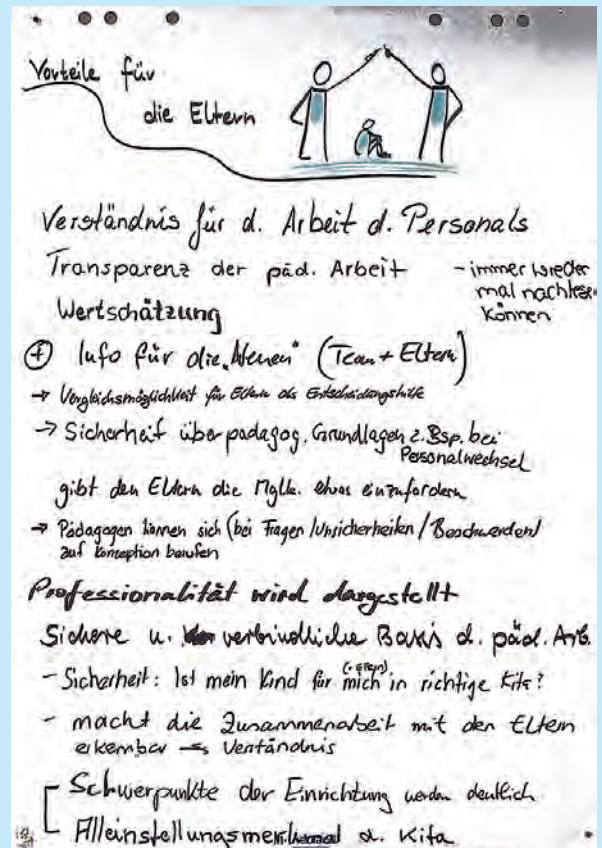 Vorteile für
die Eltern
Verständnis für d. Arbeit d. Personals
Transparenz der päd. Arbeit - immer wieder
mal nachlesen
können
Wertschätzung
+ Info für die „Neuen“ (Team + Eltern)
→ Vergleichsmöglichkeit für Eltern als Entscheidungshilfe
→ Sicherheit über pädagog. Grundlagen z. Bsp. bei
Personalwechsel
gibt den Eltern die Mglk. etwas einzufordern
→ Pädagogen können sich (bei Fragen / Unsicherheiten / Beschwerden)
auf Konzeption berufen
Professionalität wird dargestellt
Sichere u. verbindliche Basis d. päd. Arb.
- Sicherheit: Ist mein Kind für mich (Eltern) in richtige Kita?
- macht die Zusammenarbeit mit den Eltern
erkennbar → Verständnis
Schwerpunkte der Einrichtung werden deutlich
Alleinstellungsmerkmal d. Kita